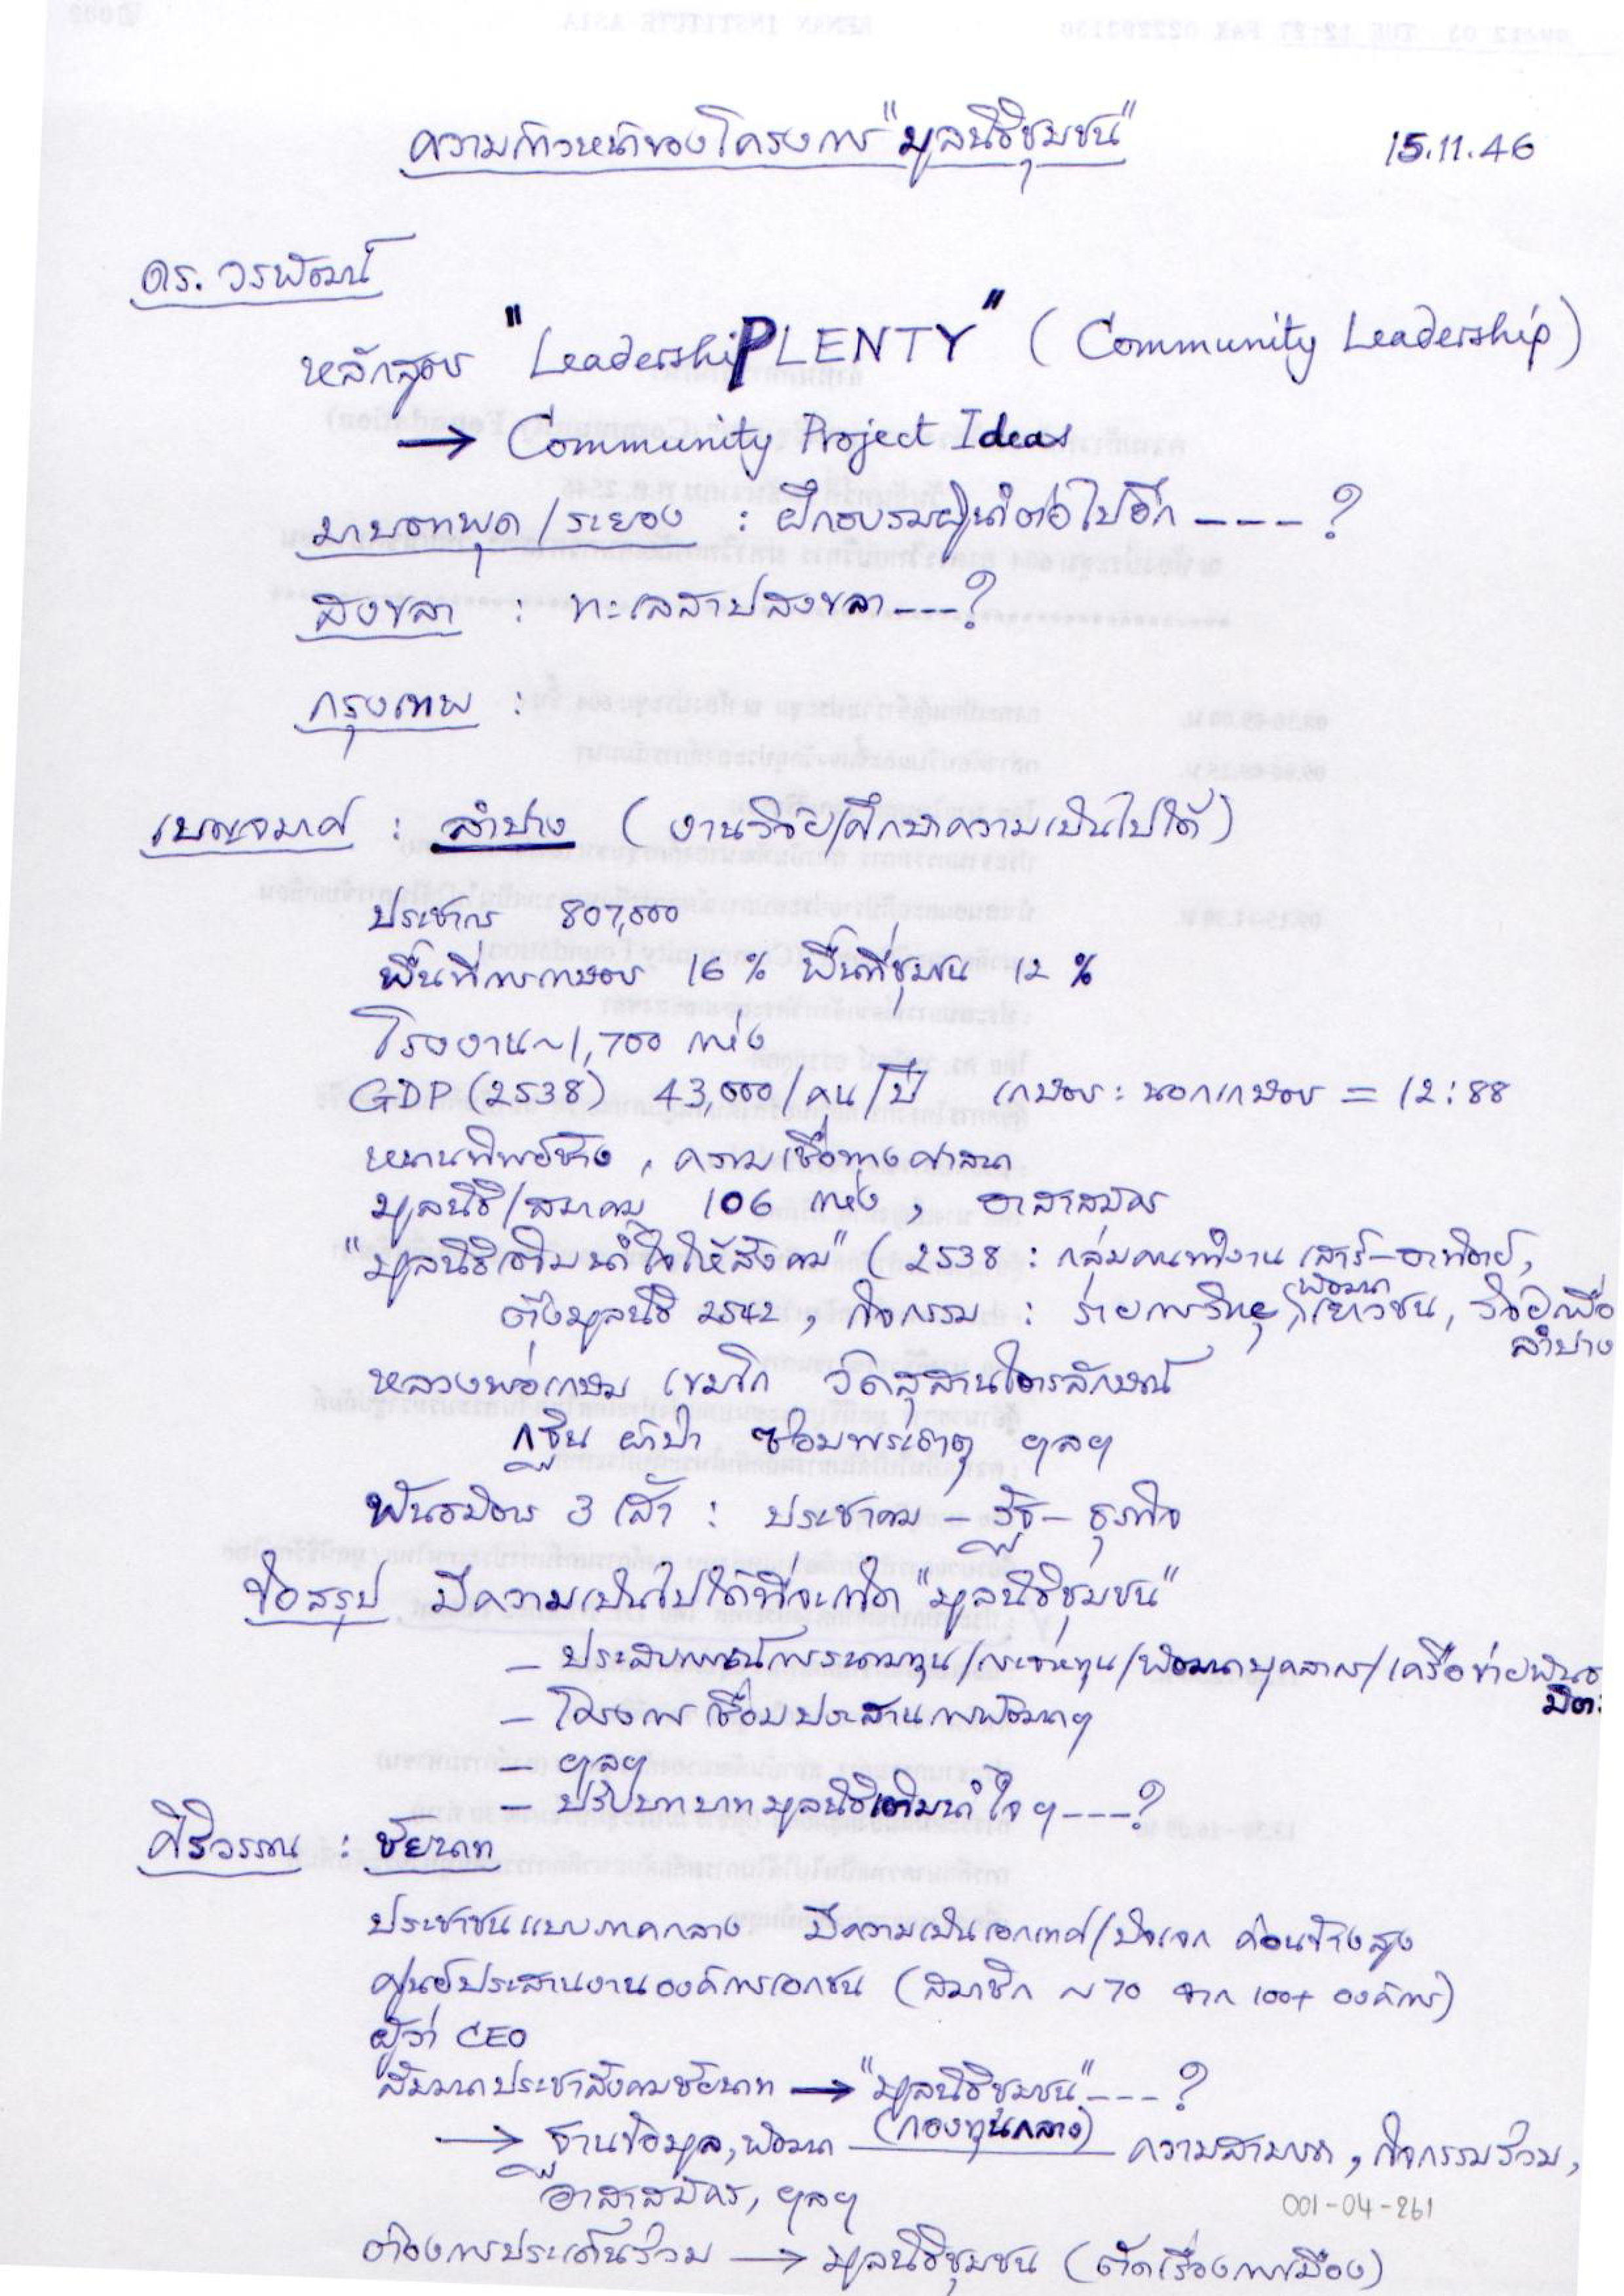 ความก้าวหน้าของโครงการ "มูลนิธิชุมชน" 15.11.46
ดร. วรพัฒน์
หลักสูตร "LeadershiPLENTY" (Community Leadership)
→ Community Project Ideas
มาบตาพุด / ระยอง : ฝึกอบรมผู้นำต่อไปอีก ----?
สงขลา : ทะเลสาปสงขลา ---?
กรุงเทพ :
เบญจมาศ : ลำปาง (งานวิจัย/ศึกษาความเป็นไปได้)
ประชากร 807,000
พื้นที่การเกษตร 16% พื้นที่ชุมชน 12%
โรงงาน ~1,700 แห่ง
GDP (2538) 43,000/คน/ปี เกษตร : นอกเกษตร = 12:88
หนานทิพย์ช้าง, ความเชื่อทางศาสนา
มูลนิธิ/สมาคม 106 แห่ง, อาสาสมัคร
"มูลนิธิเติมน้ำใจให้สังคม" (2538 : กลุ่มคนทำงาน เสาร์-อาทิตย์,
ตั้งมูลนิธิ 2542, กิจกรรม : รายการวิทยุ, พัฒนาเยาวชน, วิจัยเพื่อ
ลำปาง
หลวงพ่อเกษม เขมโก วัดสุสานไตรลักษณ์
กฐิน ผ้าป่า ซ่อมพระธาตุ ฯลฯ
พันธมิตร 3 เส้า : ประชาคม - รัฐ - ธุรกิจ
ข้อสรุป มีความเป็นไปได้ที่จะเกิด "มูลนิธิชุมชน"
- ประสบการณ์การระดมทุน/กระจายทุน/พัฒนาบุคลากร/เครือข่ายพันธ
มิตร
- โครงการเชื่อมประสานการพัฒนาฯ
- ฯลฯ
- ปรับบทบาทมูลนิธิเติมน้ำใจฯ ---?
ศิริวรรณ : ชัยนาท
ประชาชนแบบภาคกลาง มีความเป็นเอกเทศ/ปัจเจก ค่อนข้างสูง
ศูนย์ประสานงานองค์การเอกชน (สมาชิก ~70 จาก 100+ องค์การ)
ผู้ว่า CEO
สัมมนาประชาสังคมชัยนาท → "มูลนิธิชุมชน" ---?
(กองทุนกลาง)
→ ฐานข้อมูล, พัฒนา ความสามารถ, กิจกรรมร่วม,
อาสาสมัคร, ฯลฯ
001-04-261
ต้องการประเด็นร่วม → มูลนิธิชุมชน (ตัดเรื่องการเมือง)